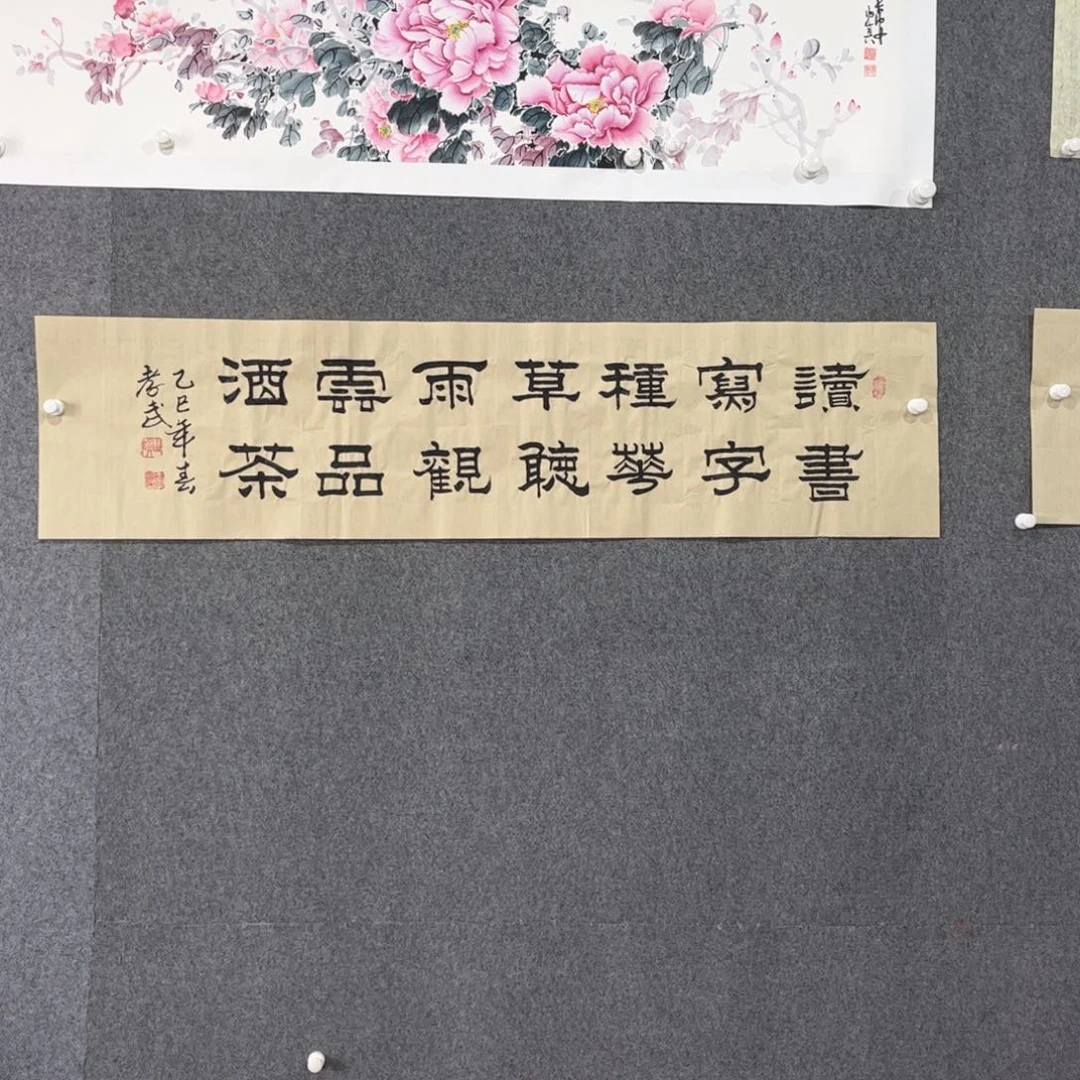 讀書
寫字
種華
草聽
雨觀
雲品
酒茶
乙巳年春
孝武